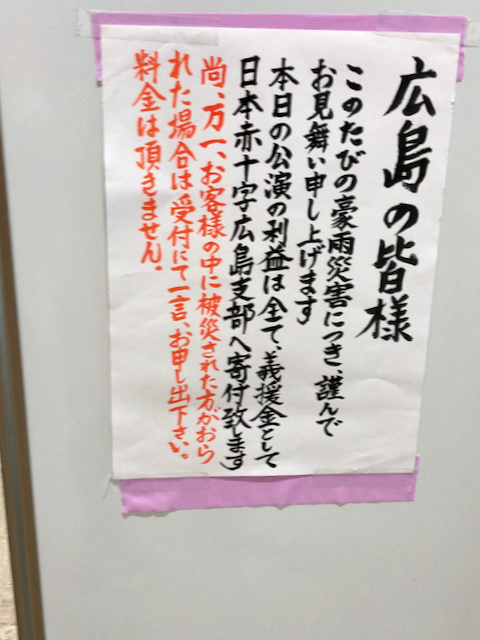 広島の皆様
このたびの豪雨災害につき、謹んで
お見舞い申し上げます
本日の公演の利益は全て、義援金として
日本赤十字広島支部へ寄付致します
尚、万一、お客様の中に被災された方がおら
れた場合は受付にて一言、お申し出下さい。
料金は頂きません.